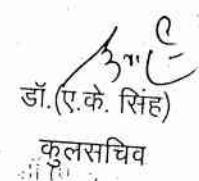 डॉ.(ए.के. सिंह)
कुलसचिव